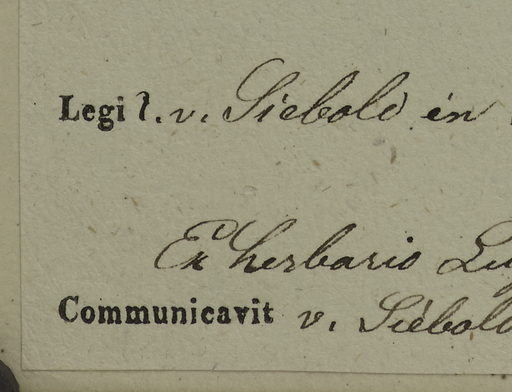 Legi ?. v. Siebold in
Ex herbario Lug
Communicavit v. Siebold